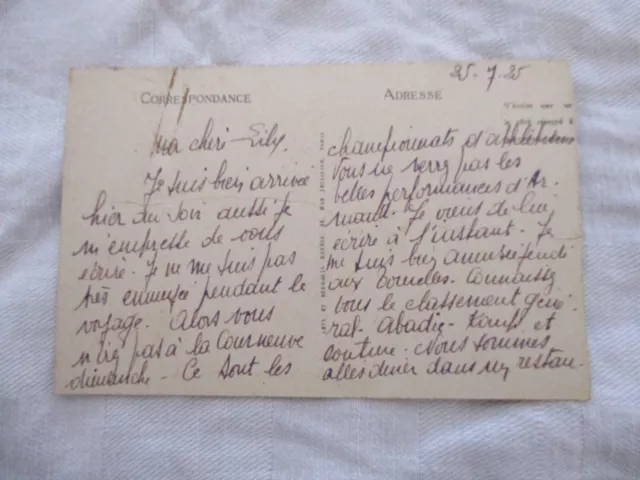 25-7-25
CORRESPONDANCE
ADRESSE
Ma chère Lily.
Je suis bien arrivée
hier au soir aussi je
m'empresse de vous
écrire. Je ne me suis pas
très ennuyée pendant le
voyage. Alors vous
n'irez pas à la Courneuve
dimanche - Ce sont les
championnats d'athlétisme
Vous ne verrez pas les
belles performances d'Ar-
mand. Je viens de lui
écrire à l'instant. Je
me suis bien amusée jeudi
aux Connaissez
vous le classement géné-
ral. Abadie - et
couture. Nous sommes
allées dîner dans un restau-